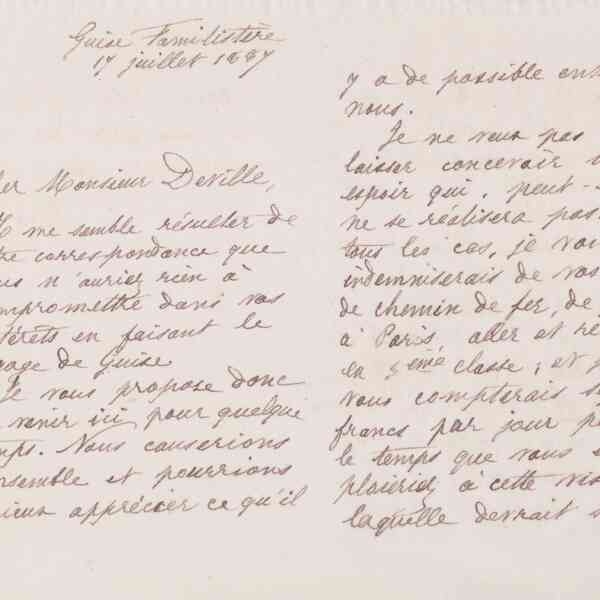 Guise Familistère
17 juillet 1887
her Monsieur Deville,
Il me semble résulter de
tre correspondance que
us n'auriez rien à
mpromettre dans vos
térêts en faisant le
yage de Guise
Je vous propose donc
venir ici pour quelque
mps. Nous causerions
nsemble et pourrions
ieux apprécier ce qu'il
y a de possible ent
nous.
Je ne veux pas
laisser concevoir
espoir qui, peut-
ne se réalisera pas.
tous les cas, je vou
indemniserais de vos
de chemin de fer, de
à Paris, aller et re
en 2eme classe; et
vous compterais s
francs par jour p
le temps que vous
plairiez à cette vis
laquelle devrait